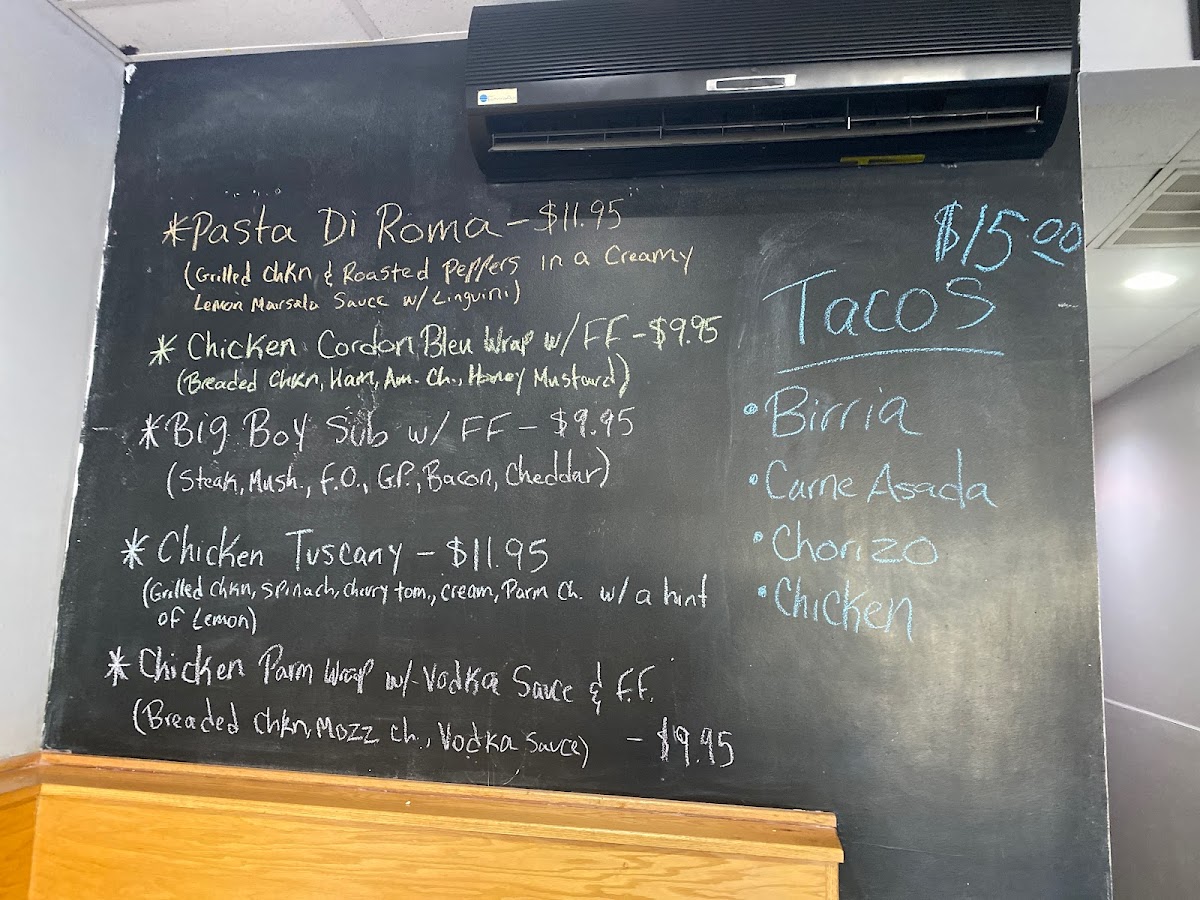 *Pasta Di Roma - $11.95
(Grilled Chkn & Roasted Peppers in a Creamy
Lemon Marsala Sauce w/ Linguini)
* Chicken Cordon Bleu Wrap w/ FF - $9.95
(Breaded Chkn, Ham, Am. Ch., Honey Mustard)
*Big Boy Sub w/ FF - $9.95
(Steak, Mush., F.O., G.P., Bacon, Cheddar)
* Chicken Tuscany - $11.95
(Grilled Chkn, Spinach, cherry tom., cream, Parm Ch. w/ a hint
of Lemon)
* Chicken Parm Wrap w/ Vodka Sauce & F.F.
(Breaded Chkn, Mozz Ch., Vodka Sauce) - $9.95
$15.00
Tacos
• Birria
• Carne Asada
• Chorizo
• Chicken